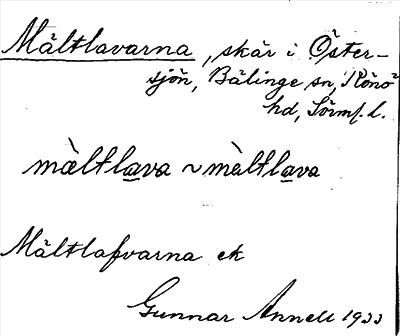 Mältlavarna, skär i Öster-
sjön, Bälinge sn, Rönö
hd, Sörml. l.
mæ̀ltlava ~ màltlava
Mältlafvarna ek
Gunnar Annell 1933